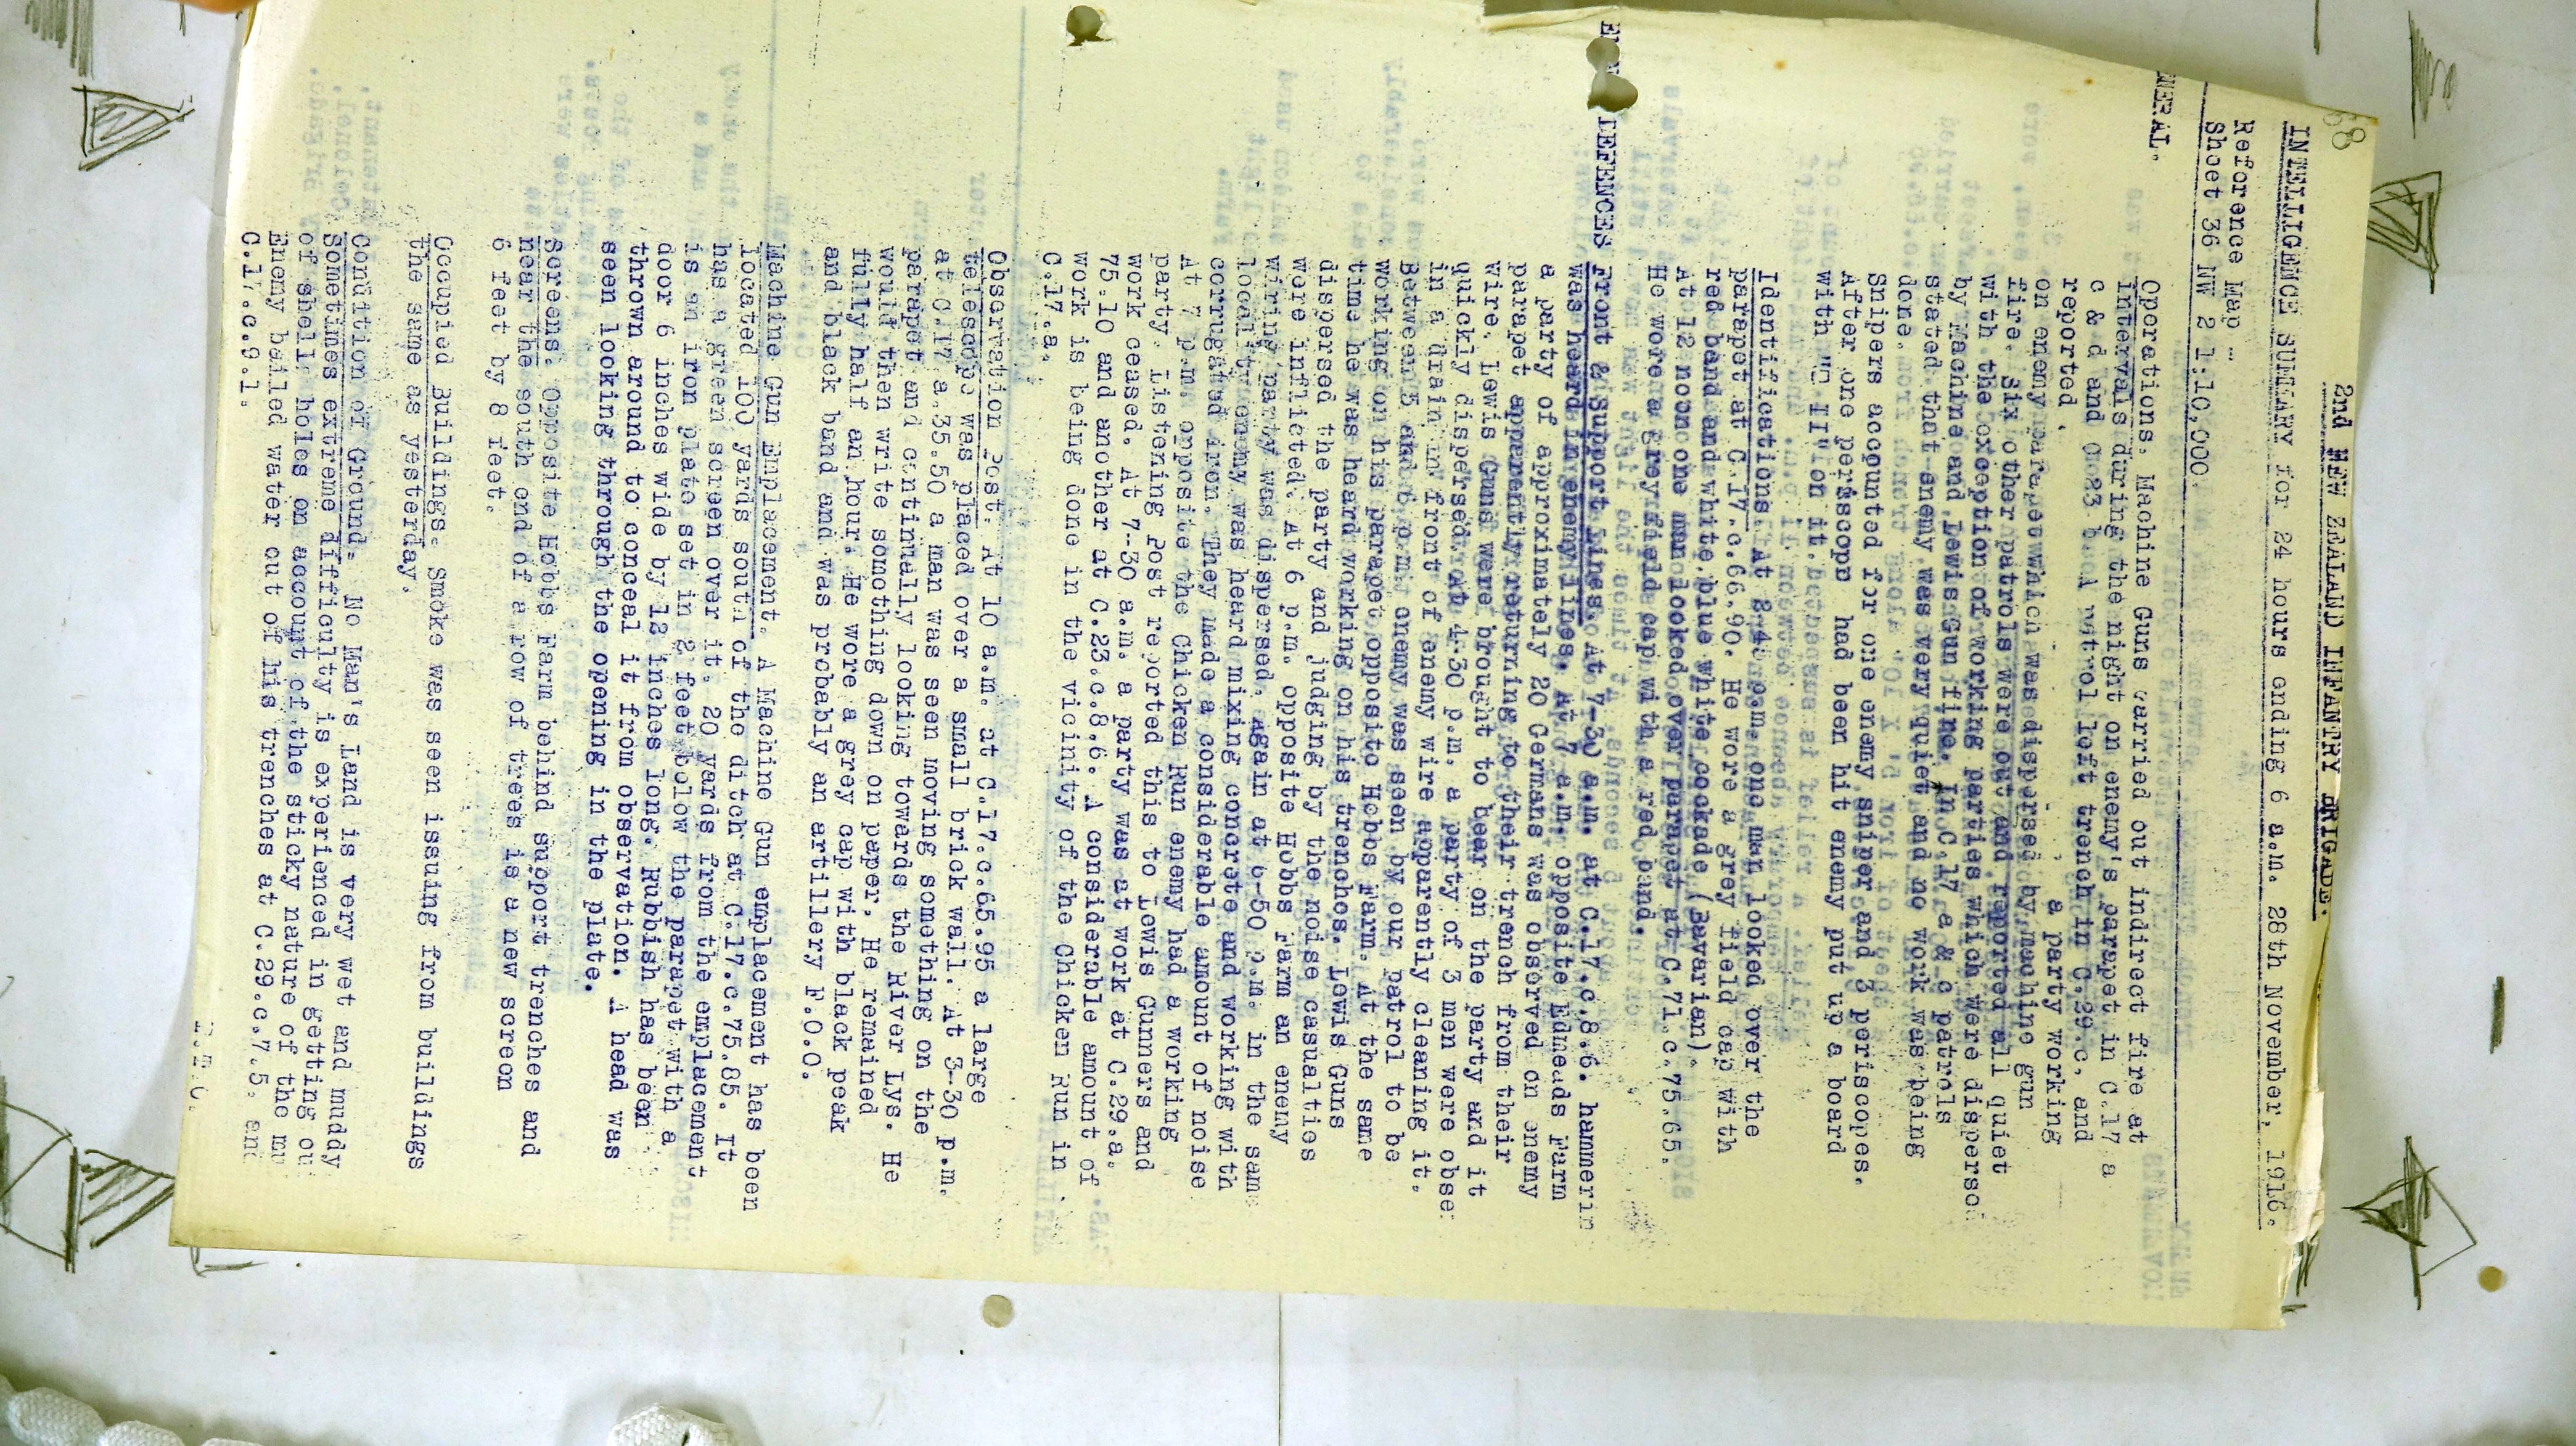 68
2nd NEW ZEALAND INFANTRY BRIGADE.
INTELLIGENCE SUMMARY for 24 hours ending 6 a.m. 28th November, 1916.
Reference Map -
Sheet 36 NW 2 1.10,000.
NERAL.
Operations. Machine Guns carried out indirect fire at
intervals during the night on enemy's parapet in C.17 a
c & d and C.23 b. A patrol left trench in C.29.c. and
reported a party working
on enemy parapet which was dispersed by machine gun
fire. Six other patrols were out and reported all quiet
with the exception of working parties which were disperse
by Machine and Lewis Gun fire. In C.17 a & c patrols
stated that enemy was very quiet and no work was being
done.
Snipers accounted for one enemy sniper and 3 periscopes.
After one periscope had been hit enemy put up a board
with on it.
Identifications. At p.m. one man looked over the
parapet at C.17.c.66.90. He wore a grey field cap with
red band and white blue white cockade (Bavarian).
At 12 noon one man looked over parapet at C.71.c.75.65.
He wore a grey field cap with a red band.
EFENCES Front & Support Lines. At 7-30 a.m. at C.17.c.8.6. hammerin
was heard in enemy lines. At 7 a.m. opposite Edmeads Farm
a party of approximately 20 Germans was observed on enemy
parapet apparently returning to their trench from their
wire. Lewis Guns were brought to bear on the party and it
quickly dispersed. At 4-30 p.m. a party of 3 men were obse
in a drain in front of enemy wire apparently cleaning it.
Between 5 and 6 p.m. enemy was seen by our patrol to be
working on his parapet opposite Hobbs Farm. At the same
time he was heard working on his trenches. Lewis Guns
dispersed the party and judging by the noise casualties
were inflicted. At 6 p.m. opposite Hobbs Farm an enemy
wiring party was dispersed. Again at 6-50 p.m. in the sam
locality enemy was heard mixing concrete and working with
corrugated iron. They made a considerable amount of noise
At 7 p.m. opposite the Chicken Run enemy had a working
party. Listening Post reported this to Lewis Gunners and
work ceased. At 7-30 a.m. a party was at work at C.29.a.
75.10 and another at C.23.c.8.6. A considerable amount of
work is being done in the vicinity of the Chicken Run in
C.17.a.
Observation Post. At 10 a.m. at C.17.c.65.95 a large
telescope was placed over a small brick wall. At 3-30 p.m.
at C.17 a.35.50 a man was seen moving something on the
parapet and continually looking towards the River Lys. He
would then write something down on paper. He remained
fully half an hour. He wore a grey cap with black peak
and black band and was probably an artillery F.O.O.
Machine Gun Emplacement. A Machine Gun emplacement has been
located 100 yards south of the ditch at C.17.c.75.85. It
has a green screen over it. 20 yards from the emplacement
is an iron plate set in 2 feet below the parapet with a
door 6 inches wide by 12 inches long. Rubbish has been
thrown around to conceal it from observation. A head was
seen looking through the opening in the plate.
Screens. Opposite Hobbs Farm behind support trenches and
near the south end of a row of trees is a new screen
6 feet by 8 feet.
Occupied Buildings. Smoke was seen issuing from buildings
the same as yesterday.
Condition of Ground. No Man's Land is very wet and muddy
Sometimes extreme difficulty is experienced in getting ou
of shell holes on account of the sticky nature of the mu
Enemy bailed water out of his trenches at C.29.c.7.5. and
C.17.c.9.1.